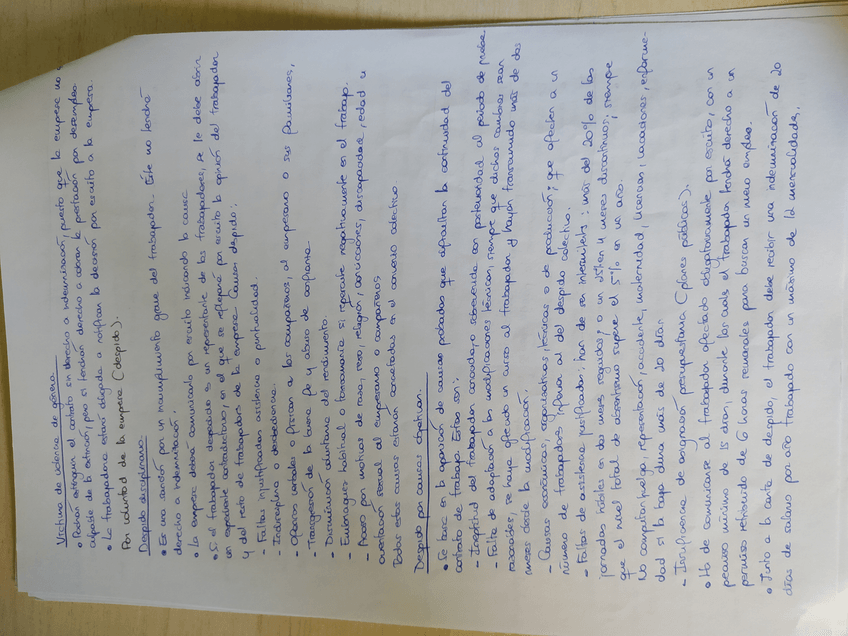 Víctima de violencia de género
• Podrán extinguir el contrato sin derecho a indemnización, puesto que la empresa no es
culpable de la extinción, pero si tendrán derecho a cobrar la prestación por desempleo.
• La trabajadora estará obligada a notificar la decisión por escrito a la empresa.
Por voluntad de la empresa (despido).
Despido disciplinario
• Es una sanción por un incumplimiento grave del trabajador. Éste no tendrá
derecho a indemnización.
• La empresa deberá comunicarlo por escrito indicando la causa.
• Si el trabajador despedido es un representante de los trabajadores, se le debe abrir
un expediente contradictorio, en el que se refleje por escrito la opinión del trabajador
y del resto de trabajadores de la empresa. Causan despido:
- Faltas injustificadas asistencia o puntualidad.
- Indisciplina o desobediencia.
- Ofensas verbales o físicas a los compañeros, al empresario o sus familiares,
- Transgresión de la buena fe y abuso de confianza
- Disminución voluntaria del rendimiento.
- Embriaguez habitual o toxicomanía si repercute negativamente en el trabajo.
- Acoso por motivos de raza, sexo, religión, convicciones, discapacidad, edad u
orientación sexual al empresario o compañeros
Todas estas causas estarán concretadas en el convenio colectivo.
Despido por causas objetivas.
• Se basa en la aparición de causas probadas que dificultan la continuidad del
contrato de trabajo. Éstas son:
- Ineptitud del trabajador conocida, o sobrevenida con posterioridad al periodo de prueba
- Falta de adaptación a las modificaciones técnicas, siempre que dichos cambios sean
razonables, se haya ofrecido un curso al trabajador y hayan transcurrido más de dos
meses desde la modificación.
- Causas económicas, organizativas, técnicas o de producción; que afecten a un
número de trabajadores inferior al del despido colectivo.
- Faltas de asistencia justificadas; han de ser intermitentes: más del 20% de las
jornadas hábiles en dos meses seguidos; o un 25% en 4 meses discontinuos; siempre
que el nivel total de absentismo supere el 5% en un año.
No computan huelga, representación, accidente, maternidad, licencias, vacaciones, enferme-
dad si la baja dura más de 20 días
- Insuficiencia de consignación presupuestaria (planes públicos).
• Ha de comunicarse al trabajador afectado obligatoriamente por escrito, con un
preaviso mínimo de 15 días, durante los cuales el trabajador tendrá derecho a un
permiso retribuido de 6 horas semanales para buscar un nuevo empleo.
• Junto a la carta de despido, el trabajador debe recibir una indemnización de 20
días de salario por año trabajado con un máximo de 12 mensualidades.